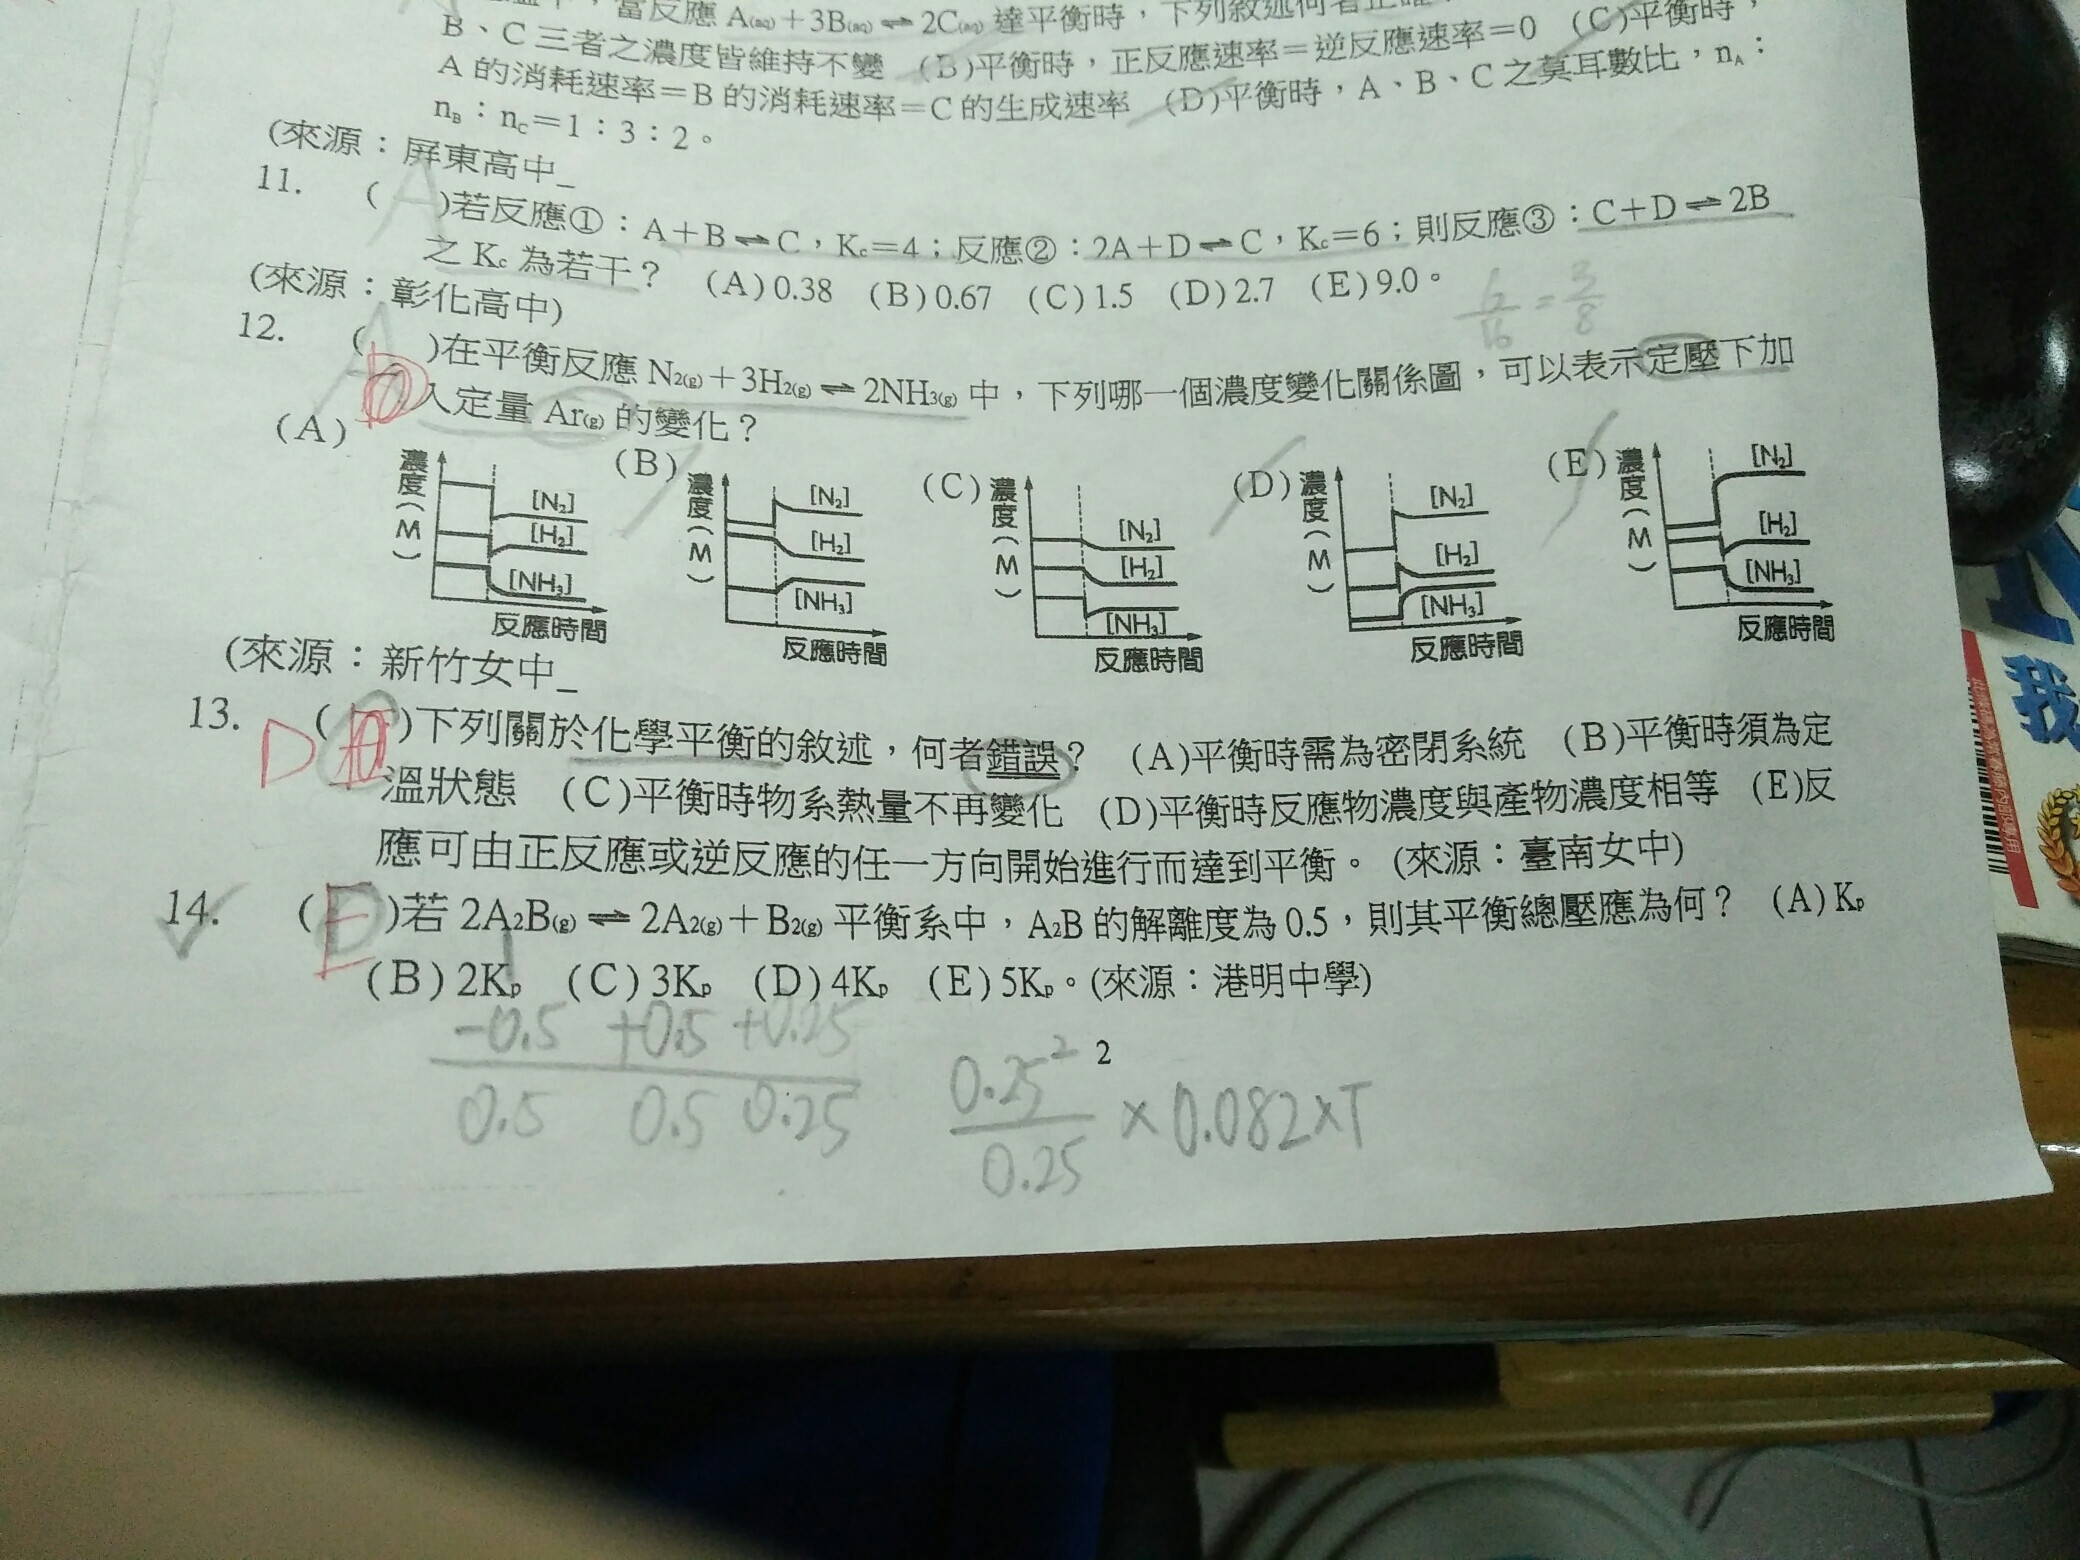 當反應 A(aq)＋3B(aq) ⇌ 2C(aq) 達平衡時，下列敘述何者正確
B、C 三者之濃度皆維持不變 (B)平衡時，正反應速率＝逆反應速率＝0 (C)平衡時，
A 的消耗速率＝B 的消耗速率＝C 的生成速率 (D)平衡時，A、B、C 之莫耳數比，nA：
nB：nC＝1：3：2。
(來源：屏東高中_
11. (A)若反應①：A＋B ⇌ C，Kc＝4；反應②：2A＋D ⇌ C，Kc＝6；則反應③：C＋D ⇌ 2B
之 Kc 為若干？ (A)0.38 (B)0.67 (C)1.5 (D)2.7 (E)9.0。
6/16 = 3/8
(來源：彰化高中)
12. ( )在平衡反應 N2(g)＋3H2(g) ⇌ 2NH3(g) 中，下列哪一個濃度變化關係圖，可以表示定壓下加
入定量 Ar(g) 的變化？
(A) 濃度(M) [N2] [H2] [NH3] 反應時間
(B) 濃度(M) [N2] [H2] [NH3] 反應時間
(C) 濃度(M) [N2] [H2] [NH3] 反應時間
(D) 濃度(M) [N2] [H2] [NH3] 反應時間
(E) 濃度(M) [N2] [H2] [NH3] 反應時間
(來源：新竹女中_
13. D ( )下列關於化學平衡的敘述，何者錯誤？ (A)平衡時需為密閉系統 (B)平衡時須為定
溫狀態 (C)平衡時物系熱量不再變化 (D)平衡時反應物濃度與產物濃度相等 (E)反
應可由正反應或逆反應的任一方向開始進行而達到平衡。 (來源：臺南女中)
14. (E)若 2A2B(g) ⇌ 2A2(g)＋B2(g) 平衡系中，A2B 的解離度為 0.5，則其平衡總壓應為何？ (A) Kp
(B) 2Kp (C) 3Kp (D) 4Kp (E) 5Kp。(來源：港明中學)
-0.5 +0.5 +0.25
2
0.5 0.5 0.25
0.25²/0.25 × 0.082×T
我